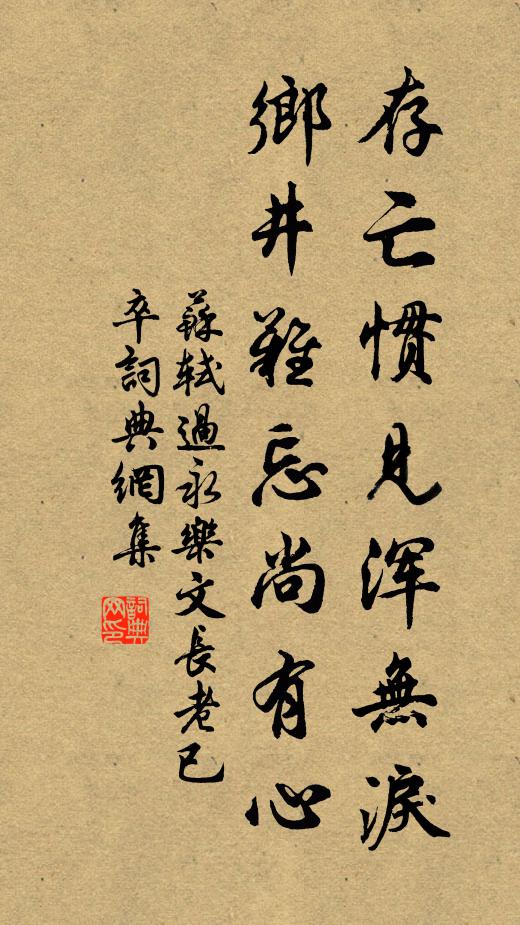 存亡慣見渾無淚
鄉井難忘尚有心
蘇軾過永樂文長老已
卒詞典網集
詞典网印